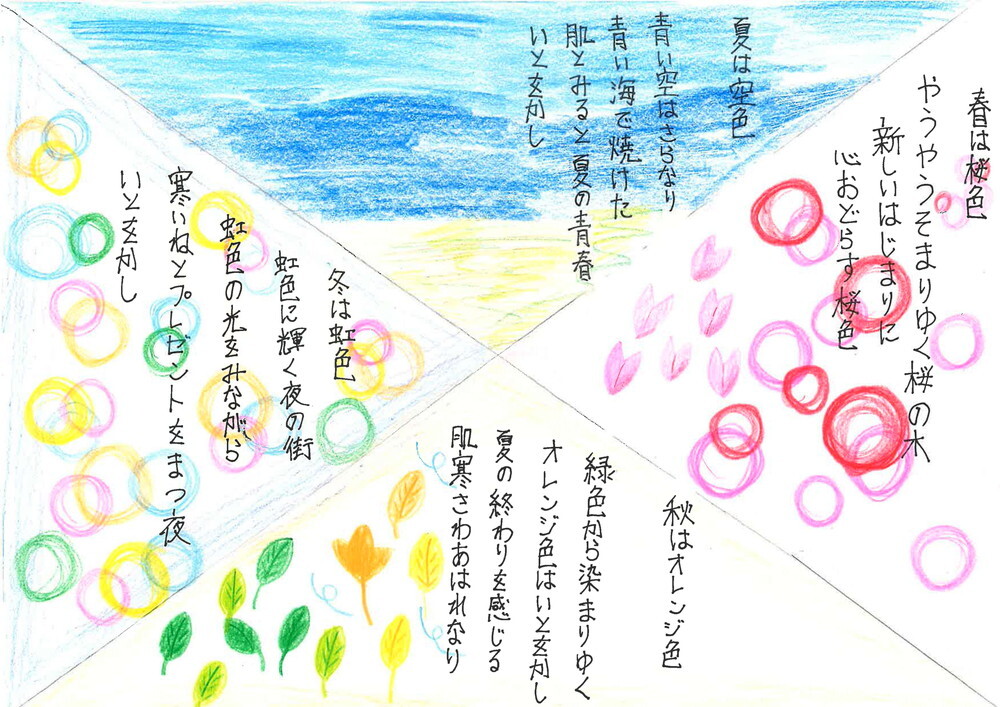 春は桜色
やうやうそまりゆく桜の木
新しいはじまりに
心おどらす桜色
夏は空色
青い空はさらなり
青い海で焼けた
肌とみると夏の青春
いとをかし
秋はオレンジ色
緑色から染まりゆく
オレンジ色はいとをかし
夏の終わりを感じる
肌寒さわあはれなり
冬は虹色
虹色に輝く夜の街
虹色の光をみながら
寒いねとプレゼントをまつ夜
いとをかし